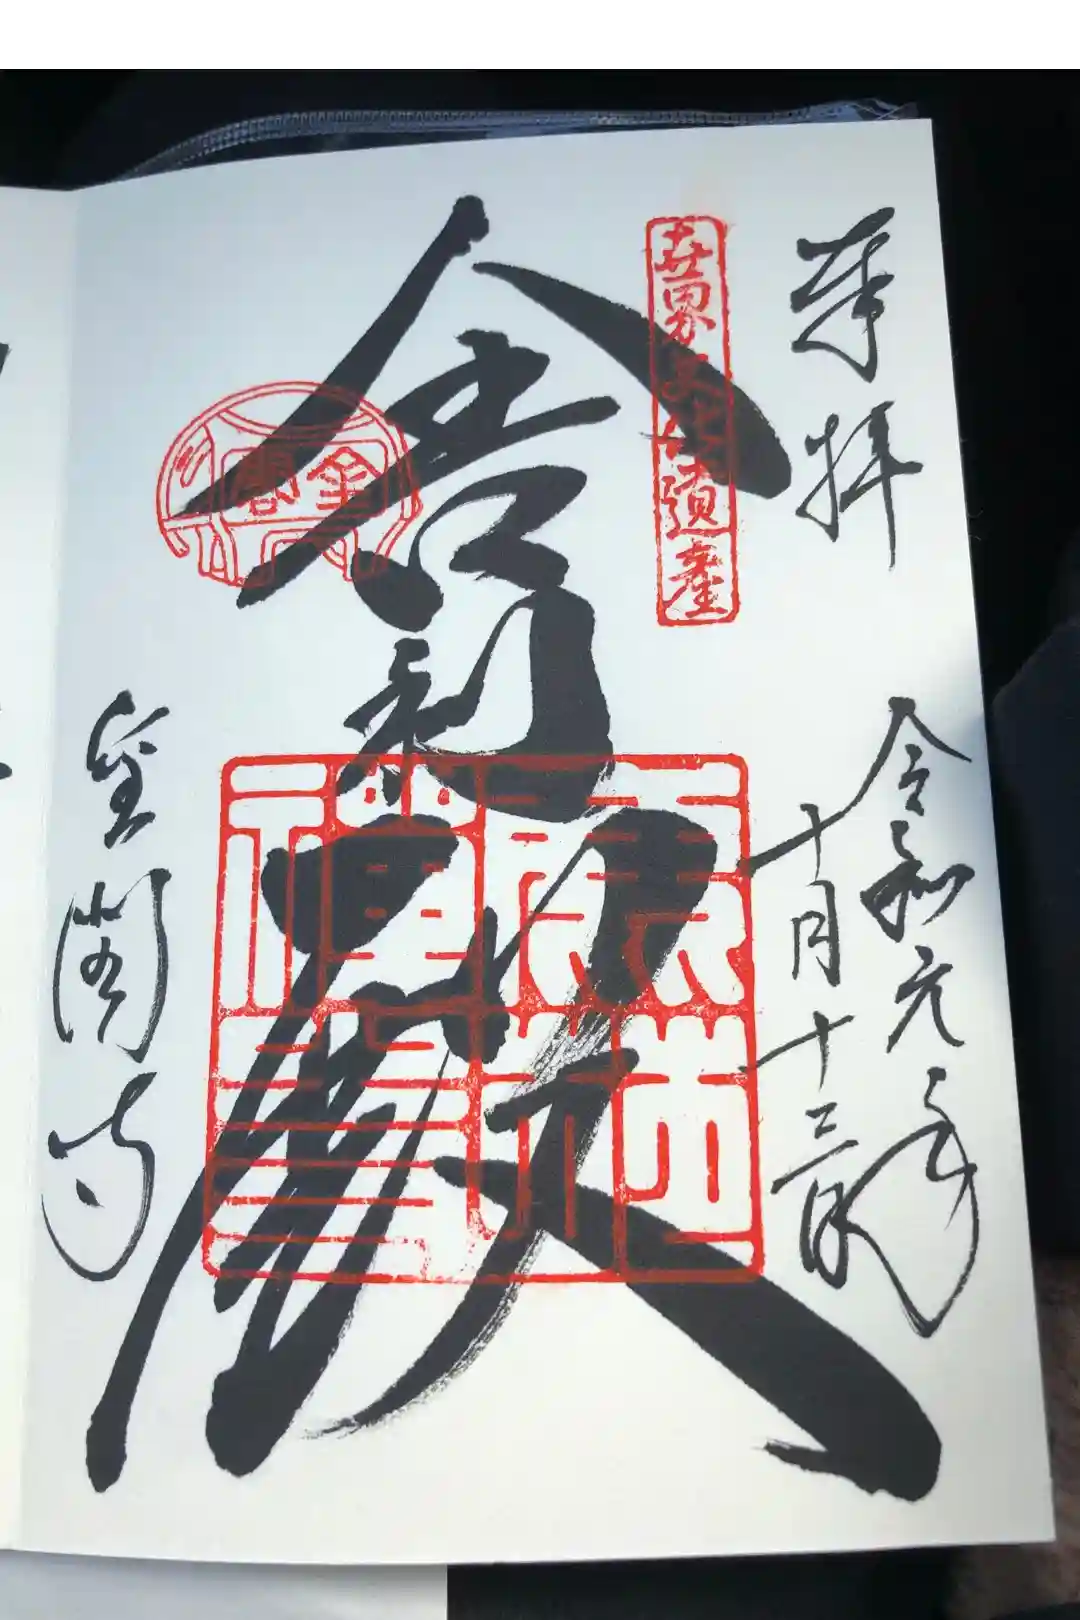 奉拝
令和元年
十月十三日
世界文化遺産
舎利殿
金閣
金閣寺